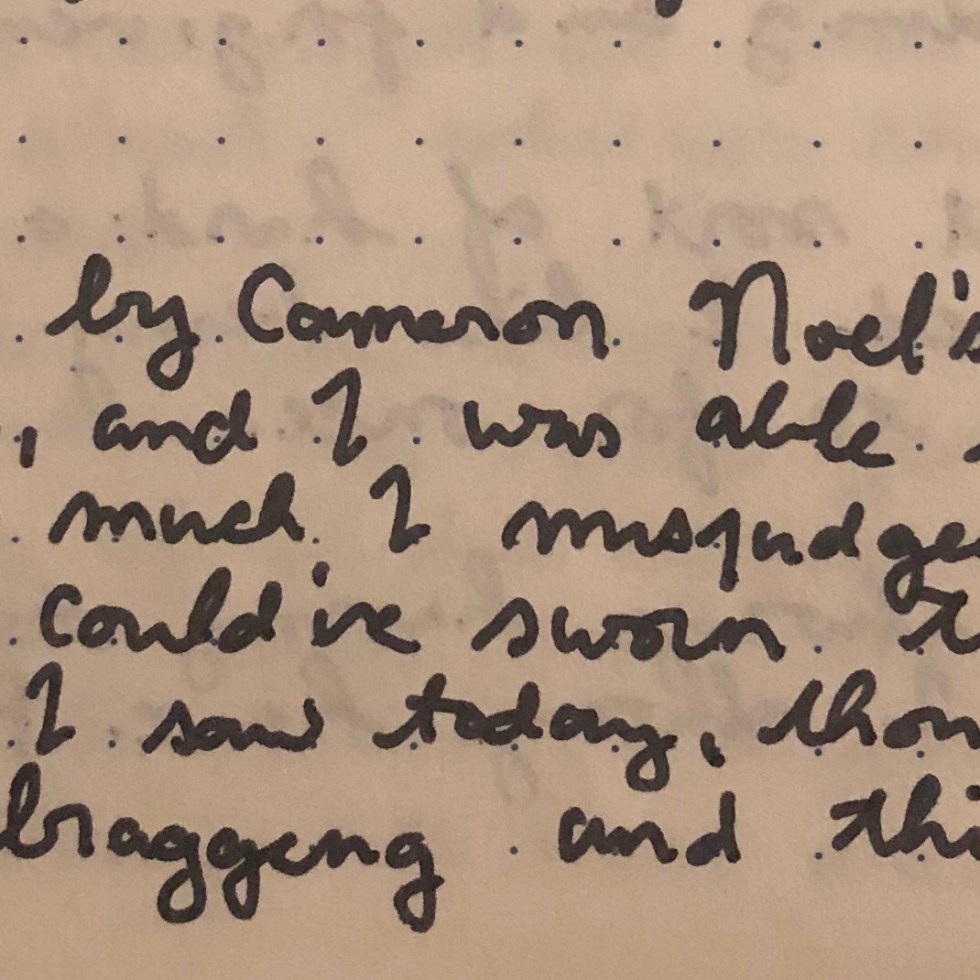 by Cameron Noel's
, and I was able
much I misjudge
could've sworn
I saw today, thou
bragging and thi